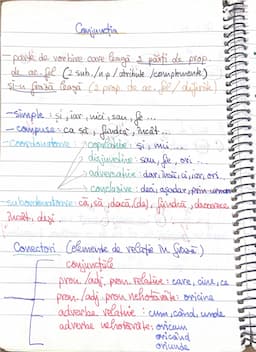 Conjuncția
- parte de vorbire care leagă 2 părți de prop.
de ac. fel (2 sub./n.p/atribute/complemente)
și-n frază leagă (2 prop. de ac. fel/diferite)
- simple: și, iar, nici, sau, fie ...
- compuse: ca să, fiindcă, încât...
- coordonatoare: copulative: și, nici...
disjunctive: sau, fie, ori ...
adversative: dar, însă, ci, iar, ori..
conclusive: deci, așadar, prin urmare
- subordonatoare: că, să, dacă, (de), fiindcă, deoarece
încât, deși.
Conectori (elemente de relație în frază)
conjuncțiile
pron./adj. pron. relative: care, cine, ce
pron./adj. pron. nehotărâte: oricine
adverbe relative: cum, când, unde
adverbe nehotărâte: oricum
oricând
oriunde